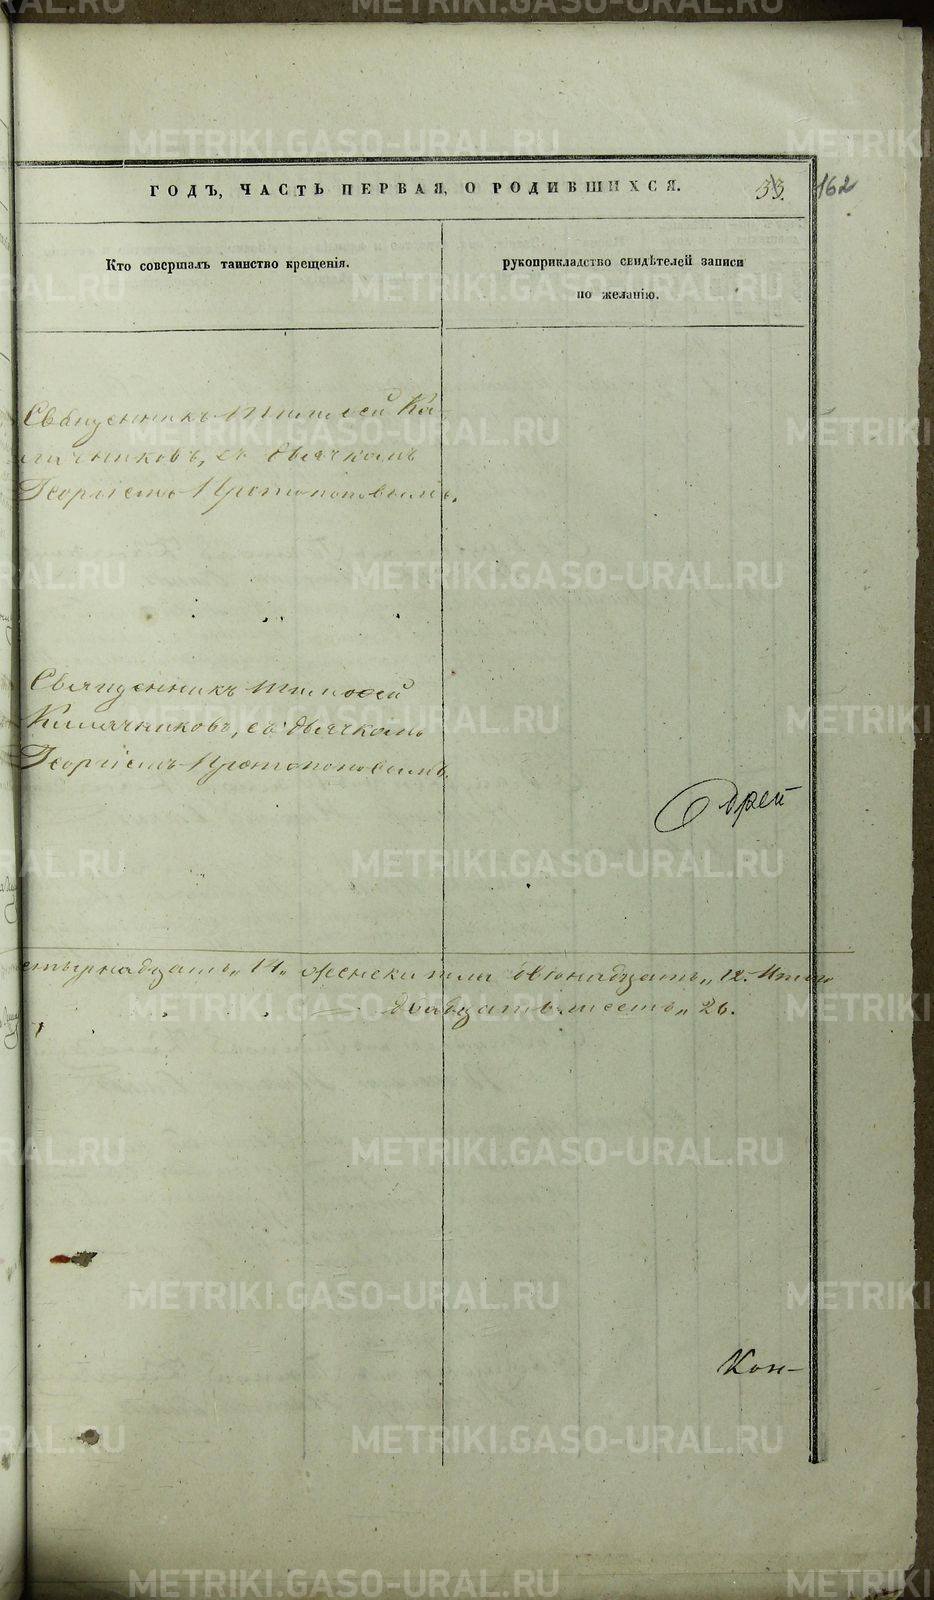 ГОДЪ, ЧАСТЬ ПЕРВАЯ, О РОДИВШИХСЯ. 33. 162
Кто совершалъ таинство крещенія.
рукоприкладство свидѣтелей записи
по желанію.
Священникъ Тимоѳей Ка-
лачниковъ, съ дьячкомъ
Георгіемъ Протопоповымъ.
Священникъ Тимоѳей
Калачниковъ, съ дьячкомъ
Георгіемъ Протопоповымъ.
ерей
етырнадцать „14„ женска пола двѣнадцать „12. Итого
двадцать шесть „26.
Кон-
METRIKI.GASO-URAL.RU